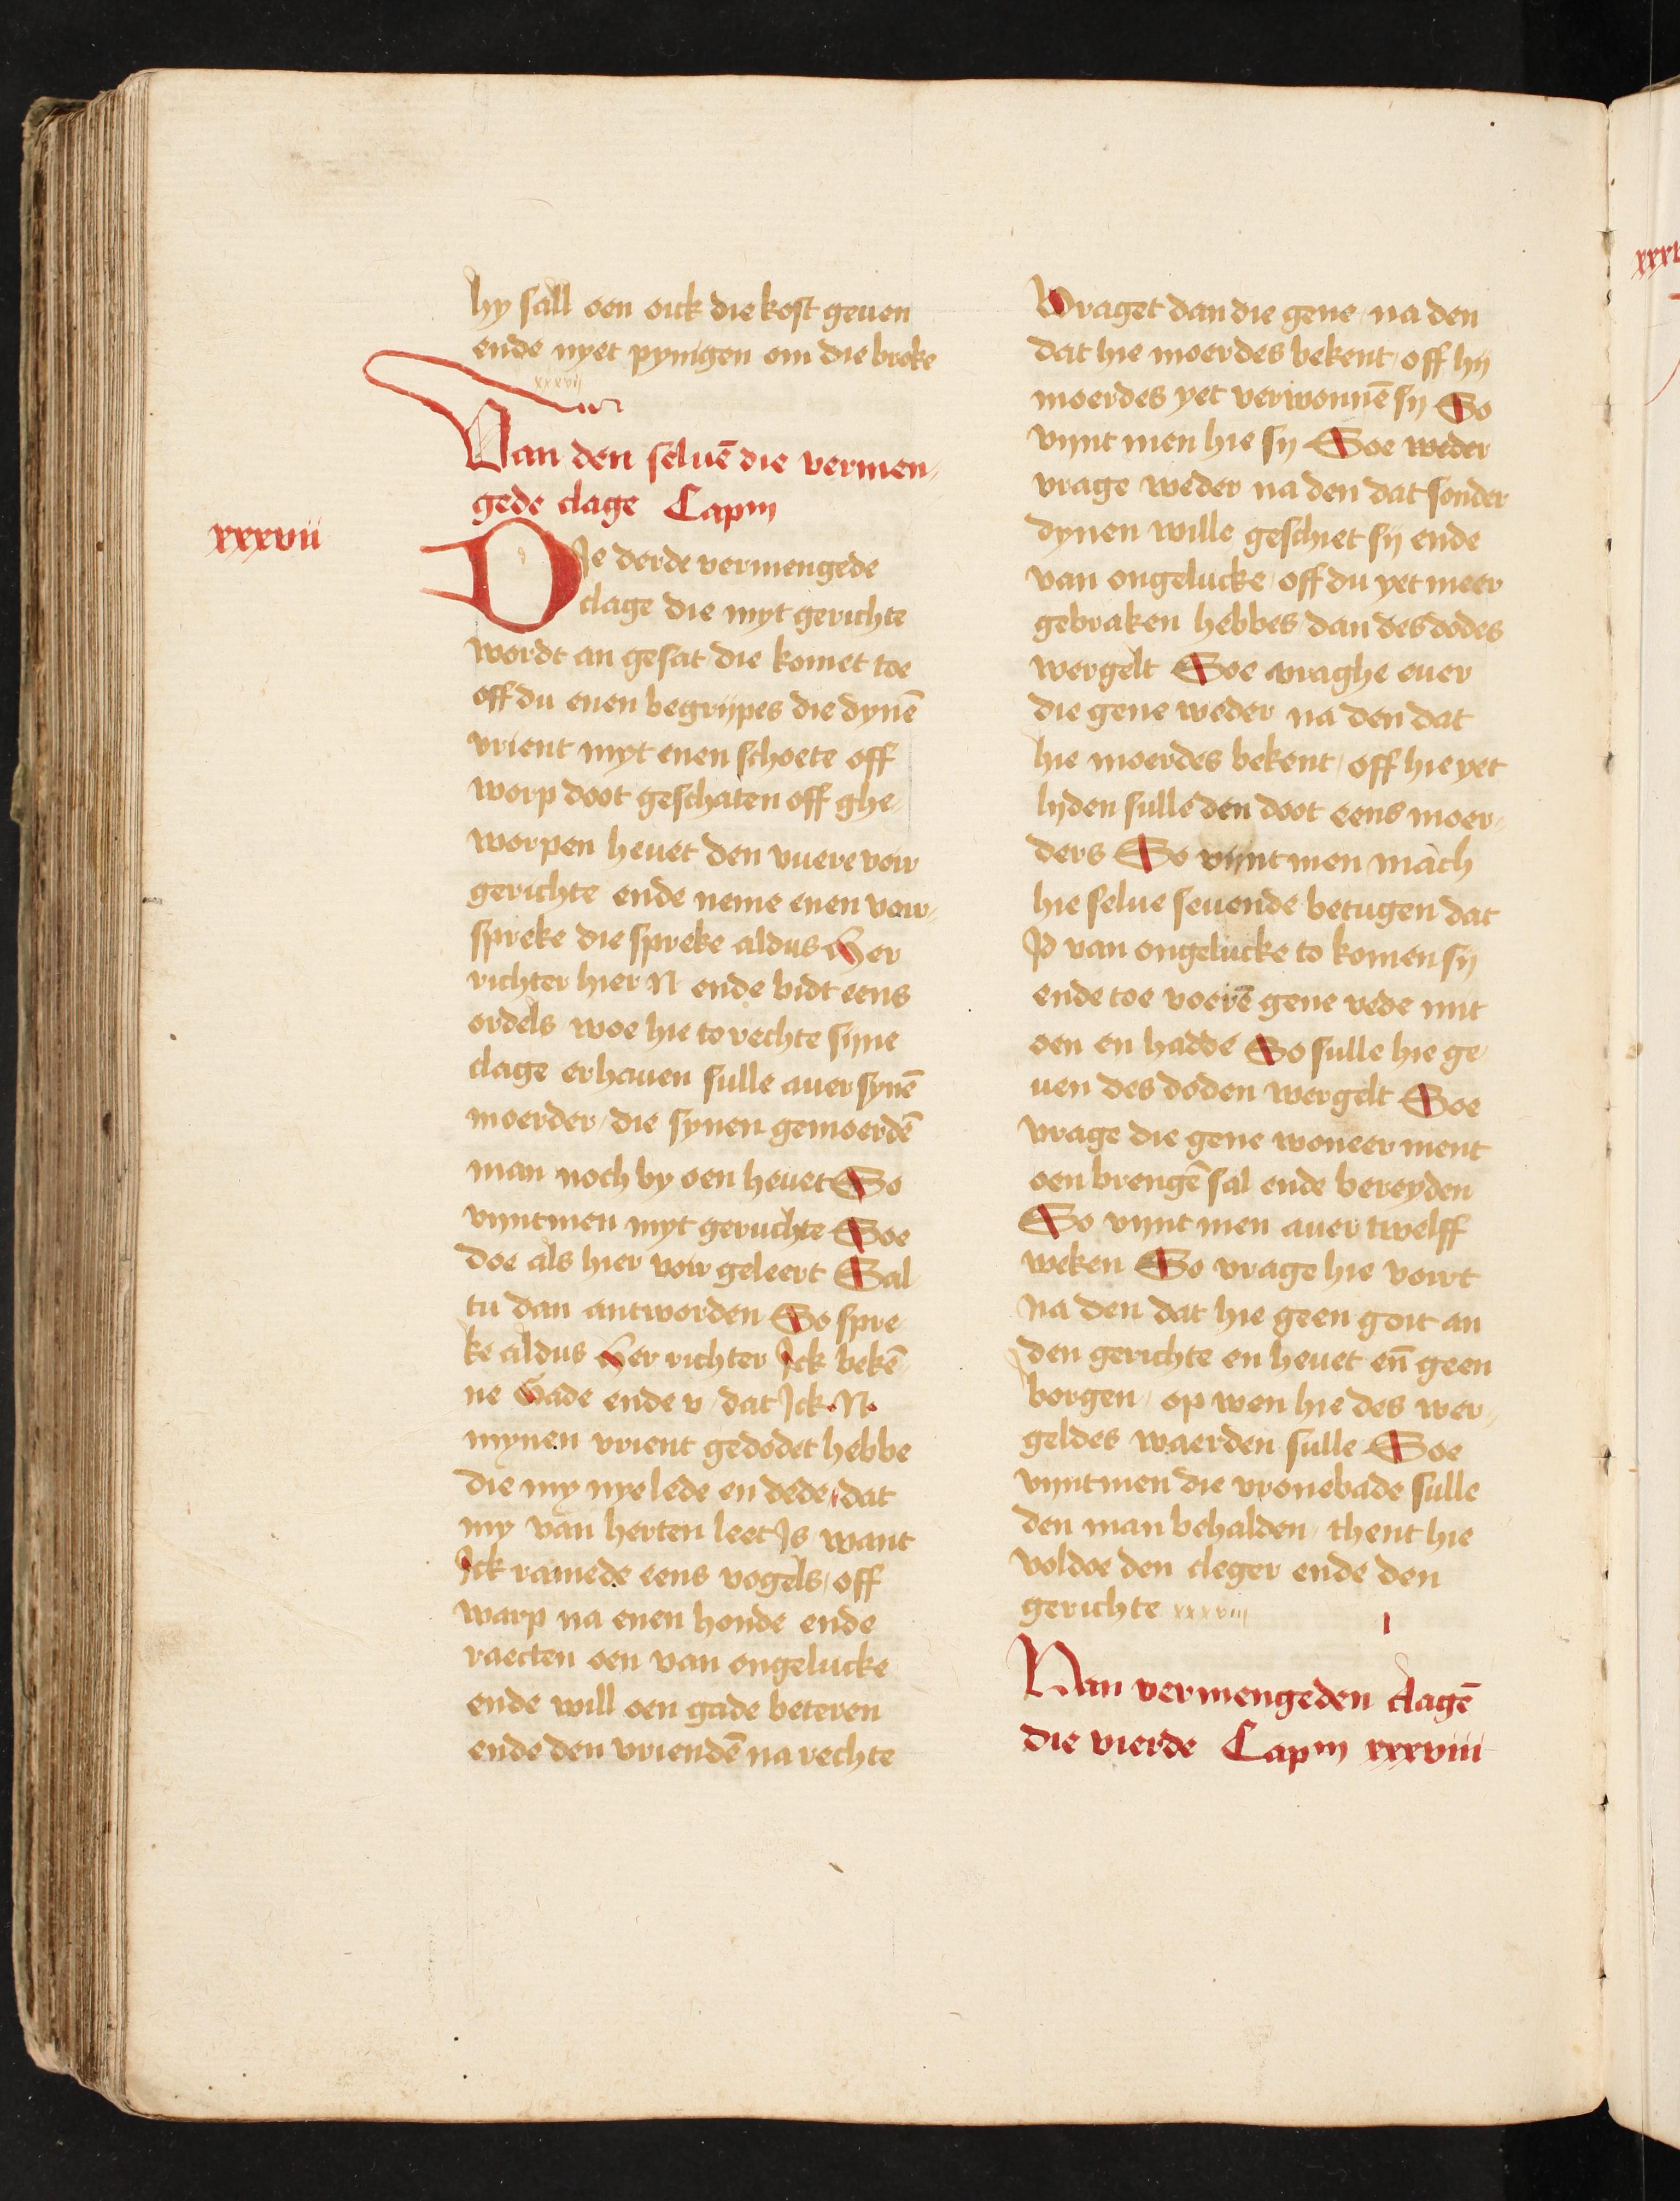 hy sall oen oick die kost geuen
ende nyet pynigen om die broke
xxxvij
Van den seluē die vermen-
gede clage Capm
xxxvii
DIe derde vermengede
clage die myt gerichte
wordt an gesat die komet toe
off du enen begrijpes die dynē
vrient myt enen schoete off
worp doot geschaten off ghe-
worpen heuet den vuere voir
gerichte ende neme enen voir-
spreke die spreke aldus Her
richter hier N ende bidt eens
ordels woe hie to rechte sijne
clage erhauen sulle auer synē
moerder die synen gemoerdē
man noch by oen heuet So
vijntmen myt geruchte Soe
doe als hier voir geleert Sal
tu dan antworden So spre
ke aldus Her richter Ick bekē-
ne Gade ende v dat Ick .N.
mynen vrient gedodet hebbe
die my nye lede en dede dat
my van herten leet Is want
Ick ramede eens vogels off
warp na enen honde ende
raecten oen van ongelucke
ende will oen gade beteren
ende den vriendē na rechte
Vraget dan die gene na den
dat hie moerdes bekent off hij
moerdes yet verwonnē sij So
vijnt men hie sij Soe weder
vrage weder na den dat sonder
dynen wille geschiet sij ende
van ongelucke off du yet meer
gebraken hebbes dan des dodes
wergelt Soe vraghe euer
die gene weder na den dat
hie moerdes bekent off hie yet
lyden sulle den doot eens moer-
ders So vijnt men mach
hie selue seuende betugen dat
Id van ongelucke to komen sij
ende toe voerē gene vede mit
oen en hadde So sulle hie ge
uen des doden wergelt Soe
vrage die gene woneer ment
oen brengē sal ende bereyden
So vijnt men auer twelff
weken So vrage hie voirt
na den dat hie geen goit an
den gerichte en heuet eñ geen
borgen op wen hie des wer-
geldes waerden sulle Soe
vijntmen die vronebade sulle
den man behalden thent hie
voldoe den cleger ende den
gerichte xxxviij
Van vermengeden clagē
die vierde Capm xxxviii